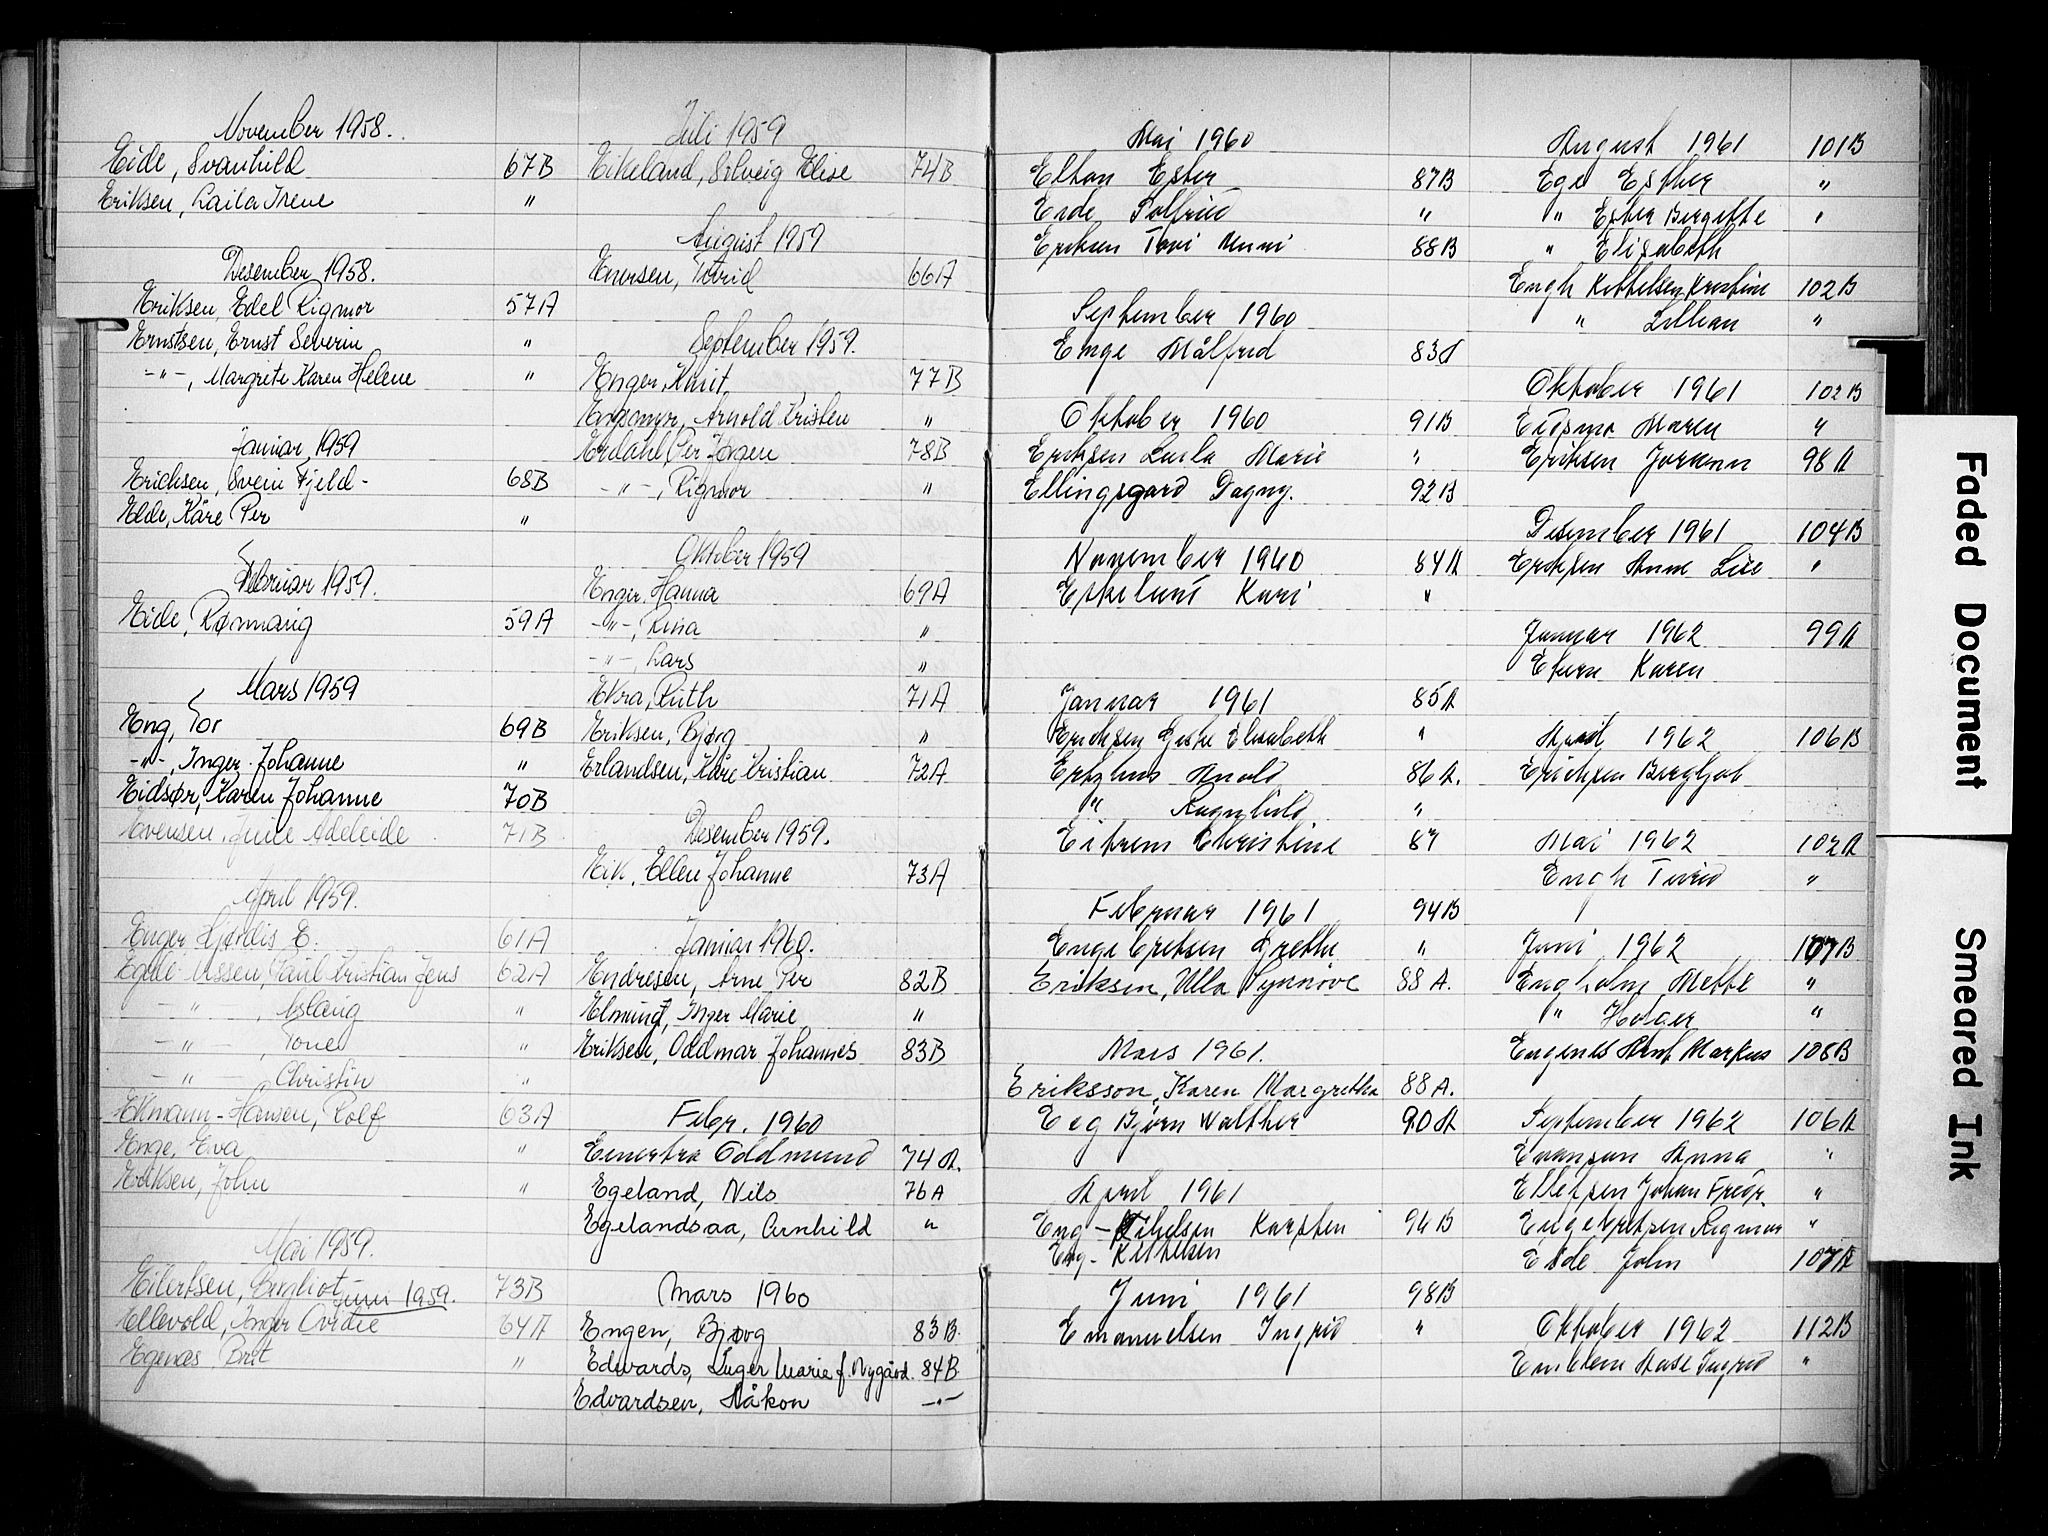 November 1958.
Eide, Svanhild 67B
Eriksen, Laila Irene "
Desember 1958.
Eriksen, Edel Rigmor 57A
Ernstsen, Ernst Severin "
-"-, Margrete Karen Helene "
Januar 1959
Erichsen, Svein Fjeld- 68B
Elde, Kåre Per "
Februar 1959.
Eide, Rønnaug 59A
Mars 1959
Eng, Tor 69B
-"-, Inger Johanne "
Eidsør, Karen Johanne 70B
Evensen, Adeleide 71B
April 1959.
Enger, Hjørdis E. 61A
Egede-Nissen, Paul Kristian Jens 62A
-"-, Aslaug "
-"-, Tone "
-"- Christin "
Ekmann-Hansen, Rolf 63A
Enge, Eva "
Eriksen, John "
Mai 1959.
Eilertsen, Bergliot 73B
Juni 1959.
Ellevold, Inger Ovidie 64A
Egenæs Brit "
Juli 1959
Eikeland, Solveig Elise 74B
August 1959
Enersen, Torid 66A
September 1959.
Enger, Knut, 77B
Engemyr, Arnold Kristen "
Erdahl, Per Jørgen 78B
-"-, Rigmor "
Oktober 1959
Enger, Hanna 69A
-"-, Rina "
-"-, Lars "
Ekra, Ruth 71A
Eriksen, Bjørg "
Erlandsen, Kåre Kristian 72A
Desember 1959.
Eik, Ellen Johanne 73A
Januar 1960.
Endresen, Arne Per 82B
Elmund, Inger Marie "
Eriksen, Oddmar Johannes 83B
Febr. 1960
Oddmund 74A.
Egeland, Nils 76A
Egelandsaa, Arnhild "
Mars 1960
Engen, Bjørg 83B.
Edwards, Inger Marie f. Nygård. 84B
Edvardsen, Håkon -"-
Mai 1960
Elton Ester 87B
Eide Solfrid "
Eriksen Tove Unni 88B
September 1960
Enge Målfrid 83A
Oktober 1960 91B
Eriksen Laila Marie "
Ellingsgard Dagny. 92B
November 1960 84A
Eskelund Kari "
Januar 1961 85A
Erichsen Elisabeth "
Arnold 86A.
" Ragnhild "
Eikrem Christine 87
Februar 1961 94B
Engebretsen Grethe "
Eriksen, Ulla Synnøve 88A.
Mars 1961.
Eriksson, Karen Margretha 88A.
Eeg Bjørn Walther 90A
April 1961
Eng-Kihelsen Karsten 96B
Eng-Kittelsen
Juni 1961 98B
Emanuelsen Ingrid "
August 1961 101B
Ege Esther "
" Ester Birgitte "
" Elisabeth
Engh Kittelsen Kristine 102B
" Lillian "
Oktober 1961 102B
Eidsmo Maren "
Eriksen Jorunn 98A
Desember 1961 104B
Eriksen Anne Lise "
Januar 1962 99A
Karen
April 1962 106B
Erichsen Bergljot
Mai 1962 102A
Engh Turid "
Juni 1962 107B
Engholm Mette "
" Holger "
Engenes Arnt Markus 108B
September 1962 106A
Evensen Anna "
Ellefsen Johan Fredr. "
Engebretsen Rigmor "
Eide John 107A
Oktober 1962 112B
Emblem Aase Ingrid "
Faded Document
Smeared Ink